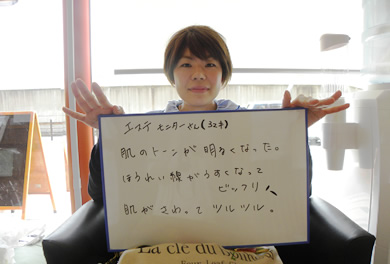 エステ モニターさん(32才)
肌のトーンが明るくなった。
ほうれい線がうすくなって
ビックリ!
肌がさわってツルツル。
La clé du bonheur